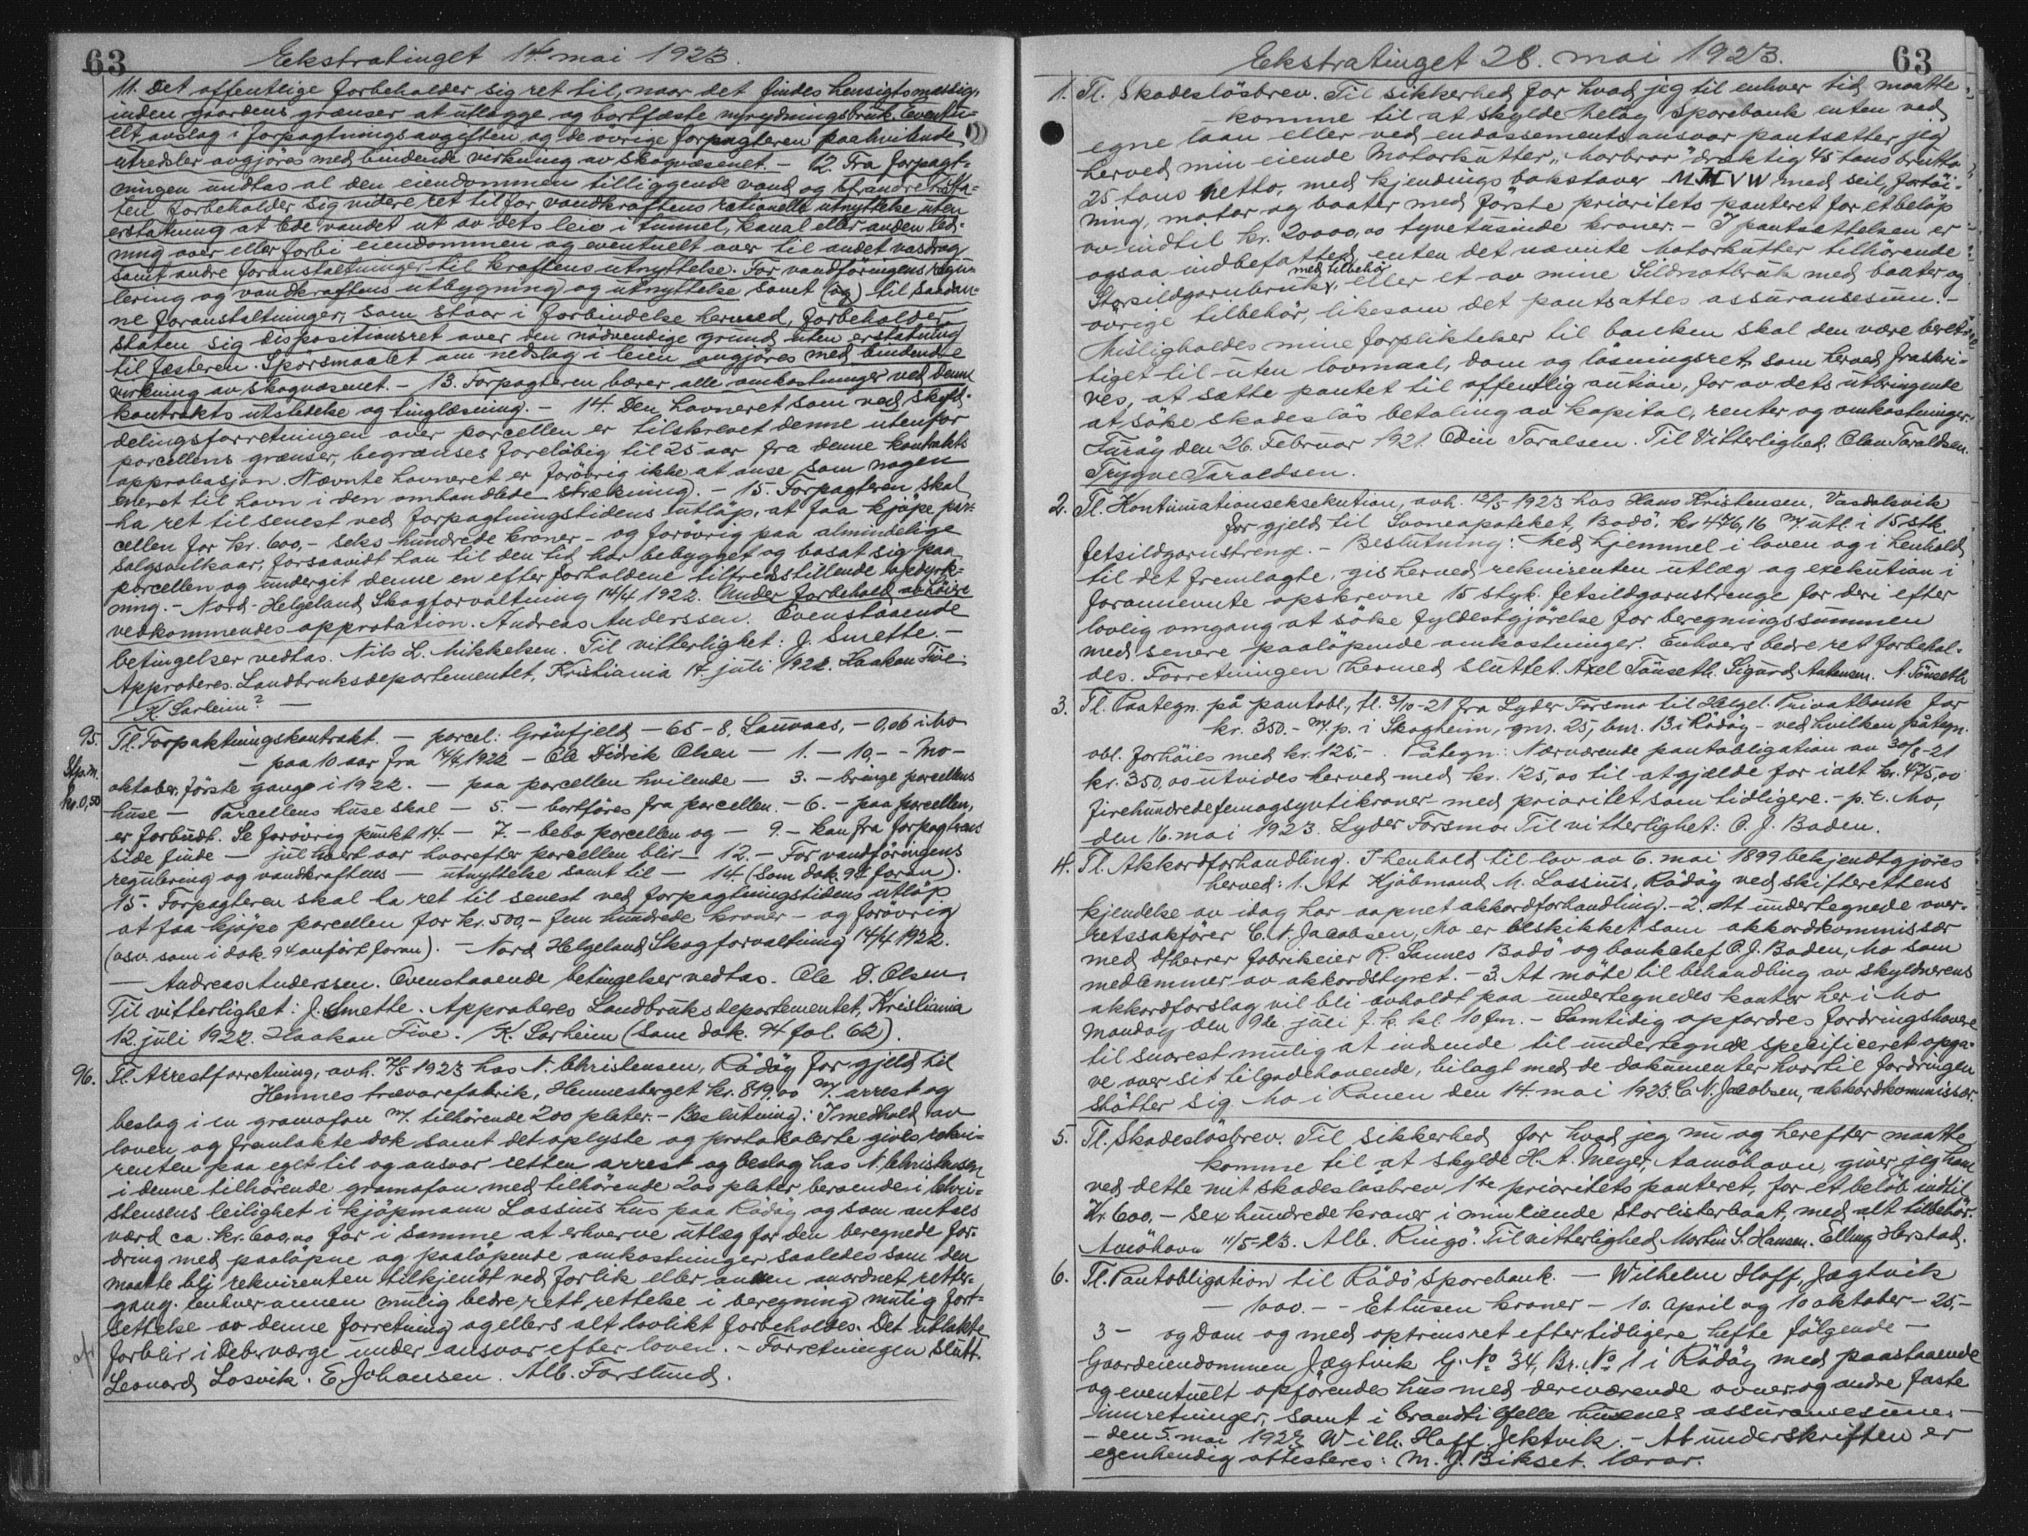 63
Ekstratinget 14. mai 1923.
11. Det offentlige forbeholder sig ret til, naar det findes hensigtsmæssig,
inden gaardens grænser at utlægge og bortfæste nyrydningsbruk. Eventu-
elt avslag i forpagtningsavgiften og de øvrige forpagteren paahvilende
utredsler avgjöres med bindende virkning av skogvæsenet. - 12. Fra forpagt-
ningen undtas al den eiendommen tilliggende vand og strandret. Sta-
ten forbeholder sig videre ret til for vandkraftens rationelle utnyttelse uten
erstatning at lede vandet ut av dets leie i tunnel, kanal eller anden led-
ning over eller forbi eiendommen og eventuelt over til andet vasdrag
samt andre foranstaltninger til kraftens utnyttelse. For vandföringens regu-
lering og vandkraftens utbygning og utnyttelse samt (og) til saadan-
ne foranstaltninger, som staar i forbindelse hermed, forbeholder
staten sig dispositionsret over den nödvendige grund uten erstatning
til fæsteren. Spörsmaalet om nedslag i leien avgjöres med bindende
virkning av skogvæsenet. - 13. Forpagteren bærer alle omkostninger ved denne
kontrakts utstedelse og tinglæsning. - 14. Den havneret som ved skyld-
delingsforretningen over parcellen er tilskrevet denne utenfor
parcellens grænser, begrænses foreløbig til 25 aar fra denne kontrakts
approbasjon. Nævnte havneret er forövrig ikke at anse som nogen
eneret til havn i den omhandlede strækning. - 15. Forpagteren skal
ha ret til senest ved forpagtningstidens utløp, at faa kjøpe par-
cellen for kr. 600,- seks hundrede kroner - og forøvrig paa almindelige
salgsvilkaar, forsaavidt han til den tid har bebygget og bosat sig paa
parcellen og undergit denne en efter forholdene tilfredsstillende opdyrk-
ning. - Nord-Helgeland Skogforvaltning 14/4 1922. Under forbehold av höiere
vedkommendes approbation. Andreas Anderssen. Ovenstaaende
betingelser vedtas. Nils L. Mikkelsen. Til vitterlighet: J. Smette. -
Approberes. Landbruksdepartementet, Kristiania 17. juli 1922. Haakon Five.
K. Sarheim? -
95. Tl. Forpaktningskontrakt. - parcel: Grönfjeld - 65 - 8, Lauvaas, - 0,06 i Mo
Stp.m. kr. 0,50
- paa 10 aar fra 14/4 1922 - Ole Didrik Olsen - 1. - 10,- - Mo -
oktober, förste gang i 1922. - paa parcellen hvilende - 3. - bringe parcellens
huse - Parcellens huse skal - 5. - bortføres fra parcellen. - 6. - paa parcellen,
er forbudt. Se forövrig punkt 14. - 7. - bebo parcellen og - 9. - kan fra forpagterens
side finde - jul hvert aar hvorefter parcellen blir - 12. - For vandföringens
regulering og vandkraftens - utnyttelse samt til - 14 (som dok. 94 foran).
15. Forpagteren skal ha ret til senest ved forpagtningstidens utløp
at faa kjøpe parcellen for kr. 500,- fem hundrede kroner - og forøvrig
(osv. som i dok. 94 anført foran). - Nord Helgeland Skogforvaltning 14/4 1922.
- Andreas Anderssen. Ovenstaaende betingelser vedtas. Ole D. Olsen.
Til vitterlighet: J. Smette. Approberes Landbruksdepartementet, Kristiania
12. juli 1922. Haakon Five. K. Sarheim (som dok. 94 fol. 62).
96. Tl. Arrestforretning, avh. 7/5 1923 hos N. Christensen, Rödöy for gjeld til
Hemnes trævarefabrik, Hemnesberget kr. 819,00 m/ arrest og
beslag i en gramofon m/ tilhörende 200 plater. - Beslutning: I medhold av
loven og fremlakte dok. samt det oplyste og protokolerte gives rekvi-
renten paa eget til og ansvar retten arrest og beslag hos N. Christensen
i denne tilhörende gramofon med tilhörende 200 plater, beroende i Chri-
stensens leilighet i kjøpmann Lassius hus paa Rödöy og som antaes
værd ca. kr. 600,00 for i samme at erhverve utlæg for den beregnede for-
dring med paalöpne og paalöpende omkostninger saaledes som den
maatte bli rekvirenten tilkjendt ved forlik eller annen anordnet retter-
gang. Enhver annen mulig bedre rett, rettelse i beregning mulig fort-
settelse av denne forretning og ellers alt lovlikt forbeholdes. Det utlakte
forblir i Debrs værge under ansvar efter loven. - Forretningen slutt.
Leonard Losvik. E. Johansen. Alb. Forslund.
63
Ekstratinget 28. mai 1923.
1. Tl. Skadeslösbrev. Til sikkerhed for hvad jeg til enhver tid maatte
komme til at skylde Meløy Sparebank enten ved
egne laan eller ved endossementsansvar pantsætter jeg
herved min eiende Motorkutter "Havbror" drægtig 45 tons brutto
25 tons netto, med kjendings bokstaver MHVW med seil, fortöi-
ning, motor og baater med förste prioritets panteret for et beløp
av indtil kr. 20000,00 tyvetusinde kroner. - I pantsættelsen er
ogsaa indbefattet enten det nævnte motorkutter tilhörende
Storsildgarnbruk med tilbehör, eller et av mine Sildnotbruk med baater og
øvrige tilbehör, likesom det pantsattes assuransesum. -
Misligholdes mine forpliktelser til banken skal den være beret-
tiget til uten lovmaal, dom og løsningsret, som herved fraskri-
ves, at sætte pantet til offentlig aution, for av dets utbringende
at söke skadeslös betaling av kapital, renter og omkostninger.
Furöy den 26. Februar 1921 Odin Taralsen. Til Vitterlighet. Olav Taraldsen.
Trygve Taraldsen.
2. Tl. Kontinuationseksekution, avh. 12/5 1923 hos Hans Kristensen, Værdalsvik
for gjeld til Svaneapoteket, Bodö, kr 476,16 m/ utl. i 15 stk.
fetsildgarnstrenge. - Beslutning: Med hjemmel i loven og i henhold
til det fremlagte, gis herved rekvirenten utlæg og exekution i
forannevnte opskrevne 15 styk. fetsildgarnstrenge for deri efter
lovlig omgang at söke fyldestgjörelse for beregningssummen
med senere paalöpende omkostninger. Enhvers bedre ret forbehol-
des. Forretningen hermed sluttet. Axel Tönseth. Sigurd Antonsen. N. Tönseth.
3. Tl. Paategn. på pantobl., tl. 3/10-21 fra Lyder Forsmo til Helgel. Privatbank for
kr. 350.- m/ p. i Skogheim, gnr. 25, bnr. 13 i Rödöy - ved hvilken påtegn.
obl. forhöies med kr. 125,- . Påtegn: Nærværende pantobligation av 30/8-21
kr. 350,00 utvides herved med kr. 125,00 til at gjælde for ialt kr. 475,00
firehundredefemogsyvtikroner - med prioritet som tidligere. - p.t. Mo,
den 16. mai 1923. Lyder Forsmo. Til vitterlighet: O. J. Boden.
4. Tl. Akkordforhandling. I henhold til lov av 6. mai 1899 bekjendtgjøres
herved: 1. At Kjöbmand M. Lassius, Rödöy ved skifterettens
kjendelse av idag har aapnet akkordforhandling. - 2. At undertegnede over-
retssakfører C. N. Jacobsen, Mo er beskikket som akkordkommissær
med d'herrer fabrikeier R. Sannes Bodö og bankchef O. J. Boden, Mo som
medlemmer av akkordstyret. - 3. At möte til behandling av skyldnerens
akkordforslag vil bli avholdt paa undertegnedes kontor her i Mo
Mandag den 9de juli f. k. kl. 10 fm. - Samtidig opfordres fordringshavere
til snarest mulig at indsende til undertegnede specificeret opga-
ve over sit tilgodehavende, bilagt med de dokumenter hvortil fordringen
støtter sig. Mo i Ranen den 14. mai 1923. C. N. Jacobsen, akkordkommissær.
5. Tl. Skadeslösbrev. Til sikkerhed for hvad jeg nu og herefter maatte
komme til at skylde H. A. Meyer, Aamöhavn, giver jeg ham
ved dette mit skadeslösbrev 1ste prioritets panteret, for et belöb indtil
Kr. 600.- sex hundrede kroner i min eiende Storlisterbaat, med alt tilbehör.
Amöhavn 11/5-23. Alb. Ringö. Til vitterlighed Martin S. Hansen. Elling Herstad.
6. Tl. Pantobligation til Rödö Sparebank. - Wilhelm Hoff, Jægtvik
- 1000. - - Ettusen kroner - 10. april og 10 oktober - 25,-
3 - og dom og med optrinsret efter tidligere hefte følgende -
Gaardeiendommen Jægtvik G. No 34, Br. No 1 i Rödöy med paastaaende
og eventuelt opførendes hus med derværende ovner og andre faste
innretninger, samt i brandtilfelle husenes assuransesumer -
- den 5. mai 1923 Wilh. Hoff. Jektvik. - At underskriften er
egenhendig attesteres: M. J. Bikset. lærar.